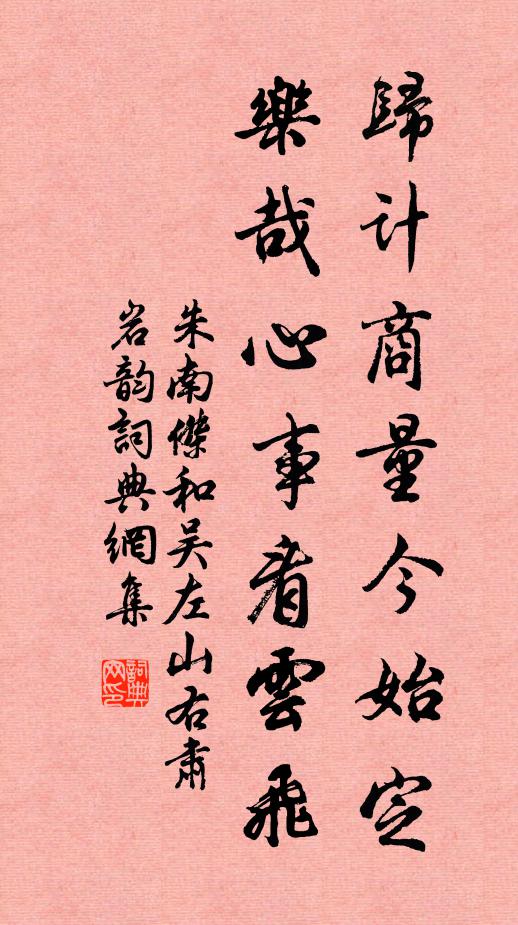 歸計商量今始定
樂哉心事看雲飛
朱南傑和吴左山右肅
岩韵詞典網集
詞典网印